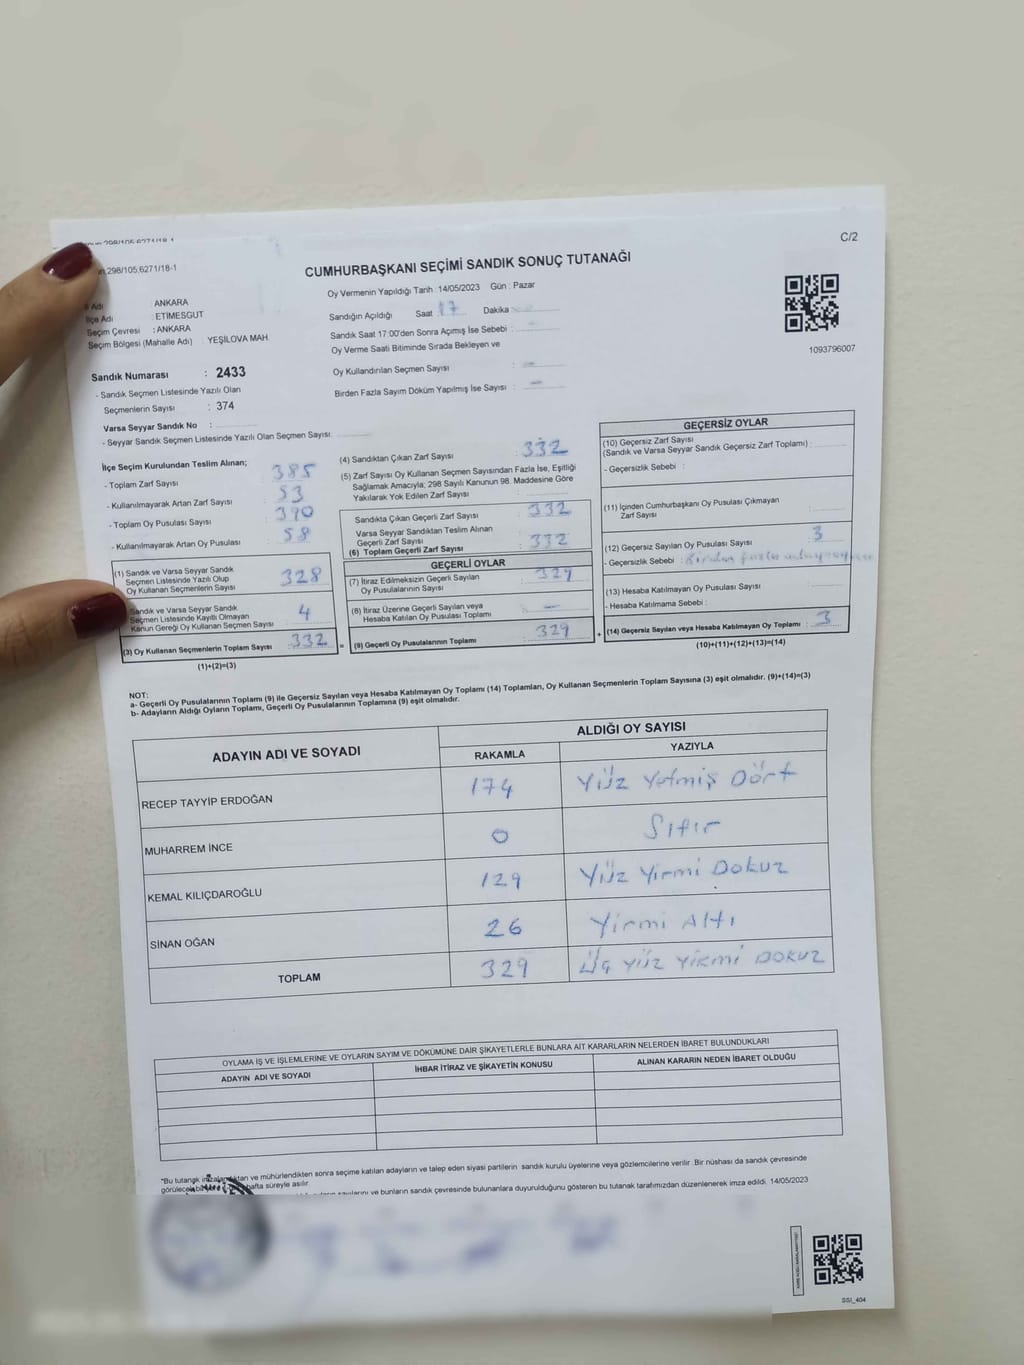 298/105,6271/18-1
C/2
,298/105,6271/18-1
CUMHURBAŞKANI SEÇİMİ SANDIK SONUÇ TUTANAĞI
Adı : ANKARA
İlçe Adı : ETİMESGUT
Seçim Çevresi : ANKARA
Seçim Bölgesi (Mahalle Adı) : YEŞİLOVA MAH.
Oy Vermenin Yapıldığı Tarih :14/05/2023 Gün : Pazar
Sandığın Açıldığı Saat 17 Dakika
Sandık Saat 17:00'den Sonra Açımış İse Sebebi :
Oy Verme Saati Bitiminde Sırada Bekleyen ve
Oy Kullandırılan Seçmen Sayısı : -
Birden Fazla Sayım Döküm Yapılmış İse Sayısı : -
1093796007
Sandık Numarası : 2433
- Sandık Seçmen Listesinde Yazılı Olan
Seçmenlerin Sayısı : 374
Varsa Seyyar Sandık No :
- Seyyar Sandık Seçmen Listesinde Yazılı Olan Seçmen Sayısı:
İlçe Seçim Kurulundan Teslim Alınan;
- Toplam Zarf Sayısı : 385
- Kullanılmayarak Artan Zarf Sayısı : 53
- Toplam Oy Pusulası Sayısı : 390
- Kullanılmayarak Artan Oy Pusulası : 58
(1) Sandık ve Varsa Seyyar Sandık
Seçmen Listesinde Yazılı Olup
Oy Kullanan Seçmenlerin Sayısı : 328
Sandık ve Varsa Seyyar Sandık
Seçmen Listesinde Kayıtlı Olmayan
Kanun Gereği Oy Kullanan Seçmen Sayısı : 4
(3) Oy Kullanan Seçmenlerin Toplam Sayısı : 332
(1)+(2)=(3)
(4) Sandıktan Çıkan Zarf Sayısı : 332
(5) Zarf Sayısı Oy Kullanan Seçmen Sayısından Fazla İse, Eşitliği
Sağlamak Amacıyla; 298 Sayılı Kanunun 98. Maddesine Göre
Yakılarak Yok Edilen Zarf Sayısı :
Sandıkta Çıkan Geçerli Zarf Sayısı : 332
Varsa Seyyar Sandıktan Teslim Alınan
Geçerli Zarf Sayısı :
(6) Toplam Geçerli Zarf Sayısı : 332
GEÇERLİ OYLAR
(7) İtiraz Edilmeksizin Geçerli Sayılan
Oy Pusulalarının Sayısı : 329
(8) İtiraz Üzerine Geçerli Sayılan veya
Hesaba Katılan Oy Pusulası Toplamı : -
(9) Geçerli Oy Pusulalarının Toplamı : 329
GEÇERSİZ OYLAR
(10) Geçersiz Zarf Sayısı
(Sandık ve Varsa Seyyar Sandık Geçersiz Zarf Toplamı) :
- Geçersizlik Sebebi :
(11) İçinden Cumhurbaşkanı Oy Pusulası Çıkmayan
Zarf Sayısı :
(12) Geçersiz Sayılan Oy Pusulası Sayısı : 3
- Geçersizlik Sebebi : Birden fazla
(13) Hesaba Katılmayan Oy Pusulası Sayısı :
- Hesaba Katılmama Sebebi :
(14) Geçersiz Sayılan veya Hesaba Katılmayan Oy Toplamı : 3
(10)+(11)+(12)+(13)=(14)
NOT:
a- Geçerli Oy Pusulalarının Toplamı (9) ile Geçersiz Sayılan veya Hesaba Katılmayan Oy Toplamı (14) Toplamları, Oy Kullanan Seçmenlerin Toplam Sayısına (3) eşit olmalıdır. (9)+(14)=(3)
b- Adayların Aldığı Oyların Toplamı, Geçerli Oy Pusulalarının Toplamına (9) eşit olmalıdır.
ADAYIN ADI VE SOYADI ALDIĞI OY SAYISI
RAKAMLA YAZIYLA
RECEP TAYYİP ERDOĞAN 174 Yüz Yetmiş Dört
MUHARREM İNCE 0 Sıfır
KEMAL KILIÇDAROĞLU 129 Yüz Yirmi Dokuz
SİNAN OĞAN 26 Yirmi Altı
TOPLAM 329 Üç Yüz Yirmi Dokuz
OYLAMA İŞ VE İŞLEMLERİNE VE OYLARIN SAYIM VE DÖKÜMÜNE DAİR ŞİKAYETLERLE BUNLARA AİT KARARLARIN NELERDEN İBARET BULUNDUKLARI
ADAYIN ADI VE SOYADI İHBAR İTİRAZ VE ŞİKAYETİN KONUSU ALINAN KARARIN NEDEN İBARET OLDUĞU
*Bu tutanak imzalandıktan ve mühürlendikten sonra seçime katılan adayların ve talep eden siyasi partilerin sandık kurulu üyelerine veya gözlemcilerine verilir. Bir nüshası da sandık çevresinde
görülecek hafta süreyle asılır.
sayılarını ve bunların sandık çevresinde bulunanlara duyurulduğunu gösteren bu tutanak tarafımızdan düzenlenerek imza edildi. 14/05/2023
SSI_404